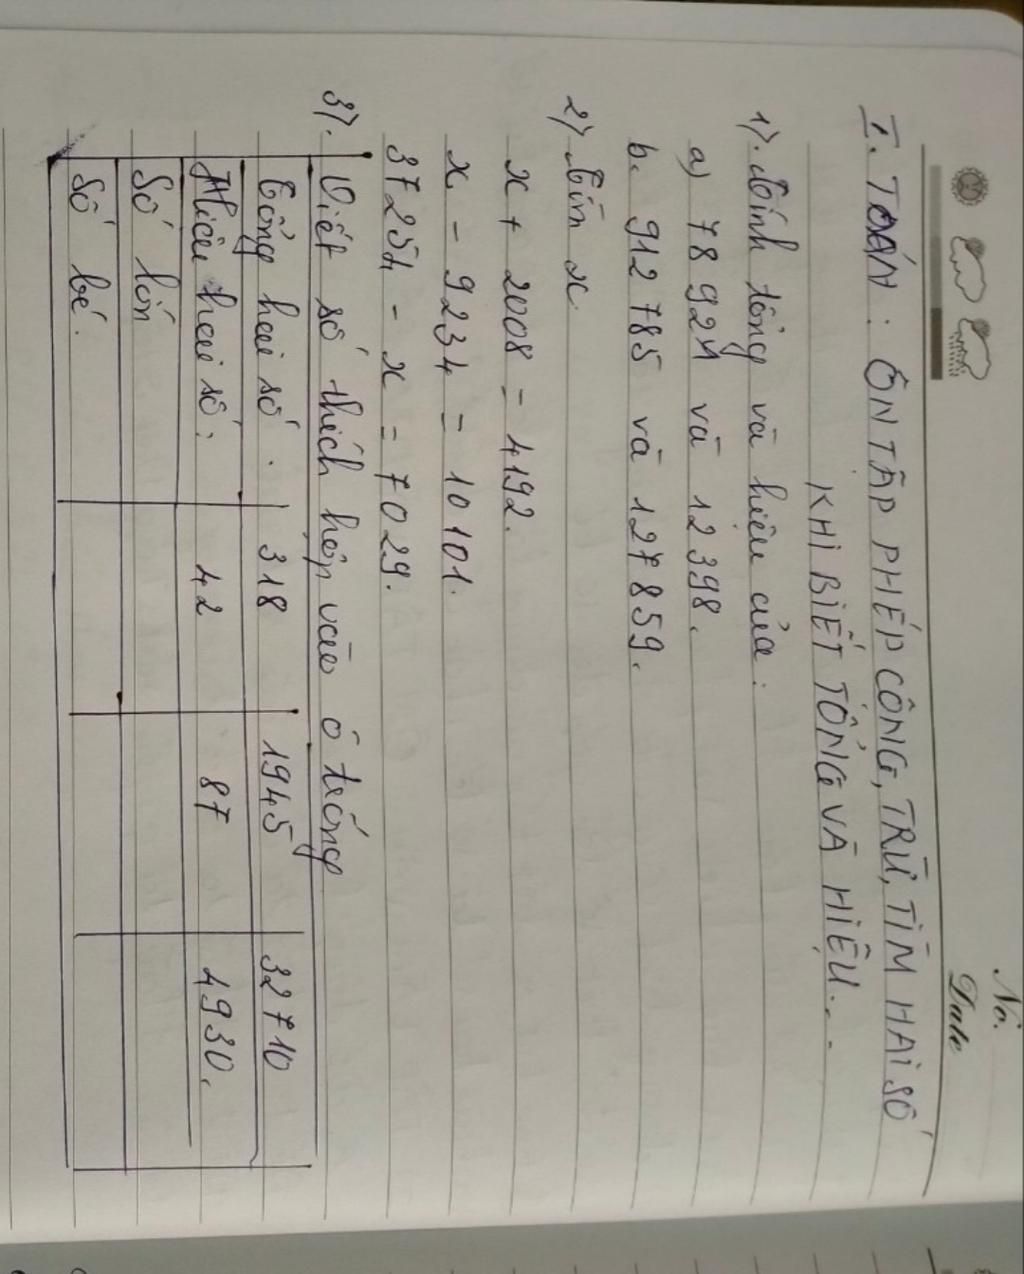 No.
Date
I. TOÁN : ÔN TẬP PHÉP CỘNG, TRỪ, TÌM HAI SỐ
KHI BIẾT TỔNG VÀ HIỆU...
1). Tính tổng và hiệu của :
a) 78 924 và 12 398.
b. 912 785 và 127 859.
2) Tìm x.
x + 2008 = 4192.
x - 9234 = 10 101.
37254 - x = 7029.
3). Viết số thích hợp vào ô trống
Tổng hai số. 318 1945 32710
Hiệu hai số. 42 87 4930.
Số lớn
Số bé.